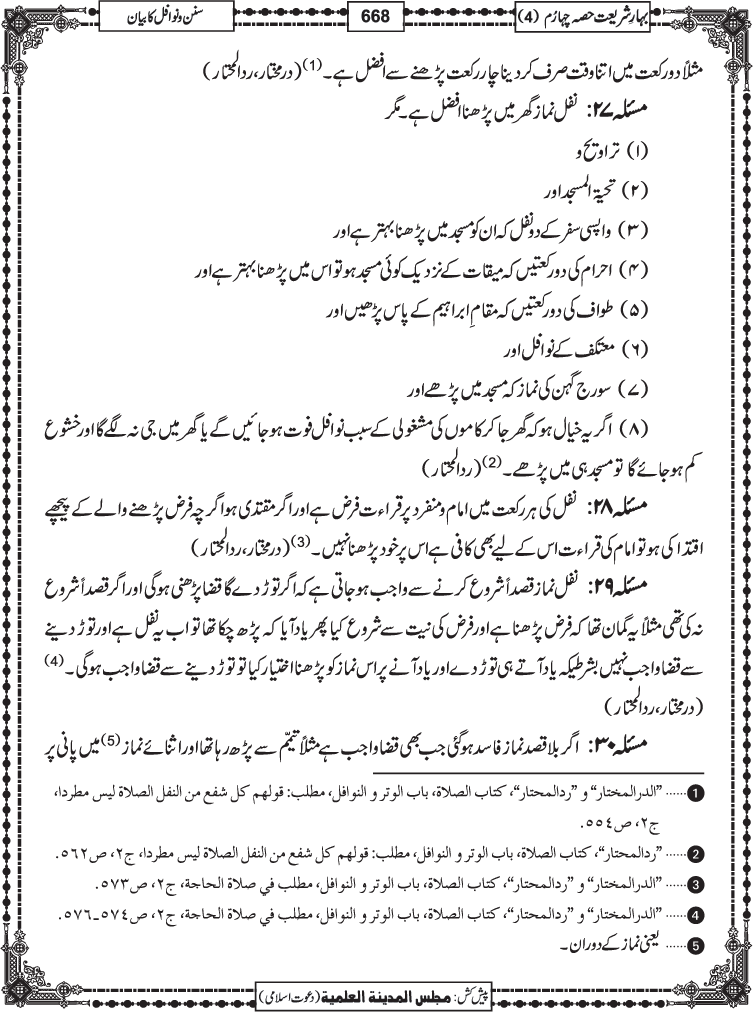 بہارِشریعت حصہ چہارُم (4)
668
سنن و نوافل کا بیان
مثلاً دو رکعت میں اتنا وقت صرف کر دینا چار رکعت پڑھنے سے افضل ہے۔(1) (درمختار، ردالمحتار)
مسئلہ ۲۷: نفل نماز گھر میں پڑھنا افضل ہے۔ مگر
(۱) تراویح و
(۲) تحیۃ المسجد اور
(۳) واپسی سفر کے دو نفل کہ ان کو مسجد میں پڑھنا بہتر ہے اور
(۴) احرام کی دو رکعتیں کہ میقات کے نزدیک کوئی مسجد ہو تو اس میں پڑھنا بہتر ہے اور
(۵) طواف کی دو رکعتیں کہ مقامِ ابراہیم کے پاس پڑھیں اور
(۶) معتکف کے نوافل اور
(۷) سورج گہن کی نماز کہ مسجد میں پڑھے اور
(۸) اگر یہ خیال ہو کہ گھر جا کر کاموں کی مشغولی کے سبب نوافل فوت ہو جائیں گے یا گھر میں جی نہ لگے گا اور خشوع
کم ہو جائے گا تو مسجد ہی میں پڑھے۔(2) (ردالمحتار)
مسئلہ ۲۸: نفل کی ہر رکعت میں امام و منفرد پر قراءت فرض ہے اور اگر مقتدی ہو اگرچہ فرض پڑھنے والے کے پیچھے
اقتدا کی ہو تو امام کی قراءت اس کے لیے بھی کافی ہے اس پر خود پڑھنا نہیں۔(3) (درمختار، ردالمحتار)
مسئلہ ۲۹: نفل نماز قصداً شروع کرنے سے واجب ہو جاتی ہے کہ اگر توڑ دے گا قضا پڑھنی ہوگی اور اگر قصداً شروع
نہ کی تھی مثلاً یہ گمان تھا کہ فرض پڑھنا ہے اور فرض کی نیت سے شروع کیا پھر یاد آیا کہ پڑھ چکا تھا تو اب یہ نفل ہے اور توڑ دینے
سے قضا واجب نہیں بشرطیکہ یاد آتے ہی توڑ دے اور یاد آنے پر اس نماز کو پڑھنا اختیار کیا تو توڑ دینے سے قضا واجب ہوگی۔(4)
(درمختار، ردالمحتار)
مسئلہ ۳۰: اگر بلا قصد نماز فاسد ہوگئی جب بھی قضا واجب ہے مثلاً تیمّم سے پڑھ رہا تھا اور اثنائے نماز(5) میں پانی پر
1 ...... "الدرالمختار" و "ردالمحتار"، كتاب الصلاة، باب الوتر و النوافل، مطلب: قولهم كل شفع من النفل الصلاة ليس مطردا،
ج٢، ص٥٥٤.
2 ...... "ردالمحتار"، كتاب الصلاة، باب الوتر و النوافل، مطلب: قولهم كل شفع من النفل الصلاة ليس مطردا، ج٢، ص٥٦٢.
3 ...... "الدرالمختار" و "ردالمحتار"، كتاب الصلاة، باب الوتر و النوافل، مطلب في صلاة الحاجة، ج٢، ص٥٧٣.
4 ...... "الدرالمختار" و "ردالمحتار"، كتاب الصلاة، باب الوتر و النوافل، مطلب في صلاة الحاجة، ج٢، ص٥٧٤-٥٧٦.
5 ...... یعنی نماز کے دوران۔
پیش کش: مجلس المدینۃ العلمیۃ (دعوت اسلامی)